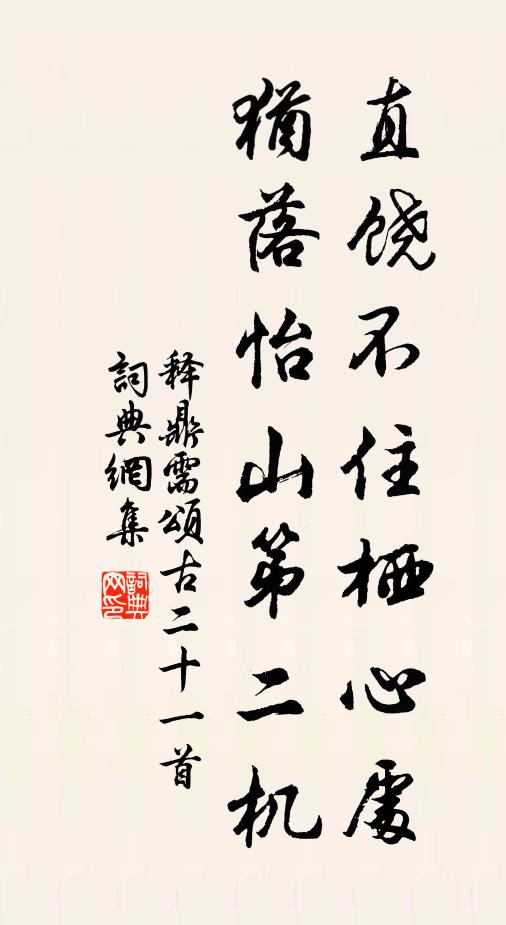 直饶不住栖心處
猶落怡山第二机
释鼎需頌古二十一首
詞典網集
詞典网印